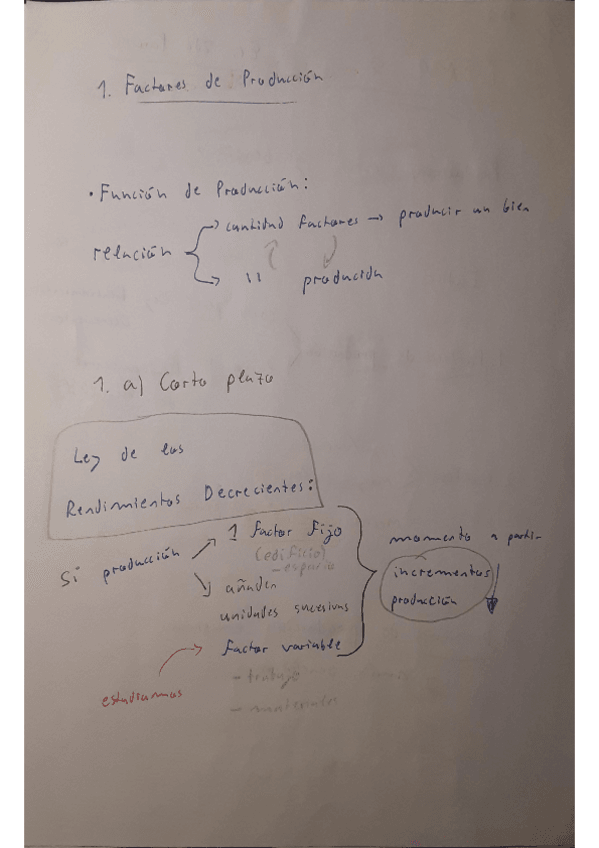 1. Factores de Producción
• Función de Producción:
relación
→ cantidad factores → producir un bien
→ " producción
1. a) Corto plazo
Ley de los
Rendimientos Decrecientes:
Si producción
1 factor fijo
(edificio)
- espacio
añaden
unidades sucesivas
factor variable
- trabajo
- materiales
estudiamos
momento a partir
incrementos
producción ↓